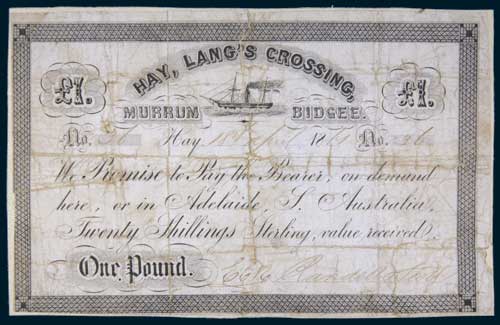 HAY, LANG'S CROSSING,
£1. £1.
MURRUM BIDGEE.
No. 36 Hay 18 No. 36
We Promise to Pay the Bearer, on demand
here, or in Adelaide, S. Australia,
Twenty Shillings Sterling, value received.
One Pound.